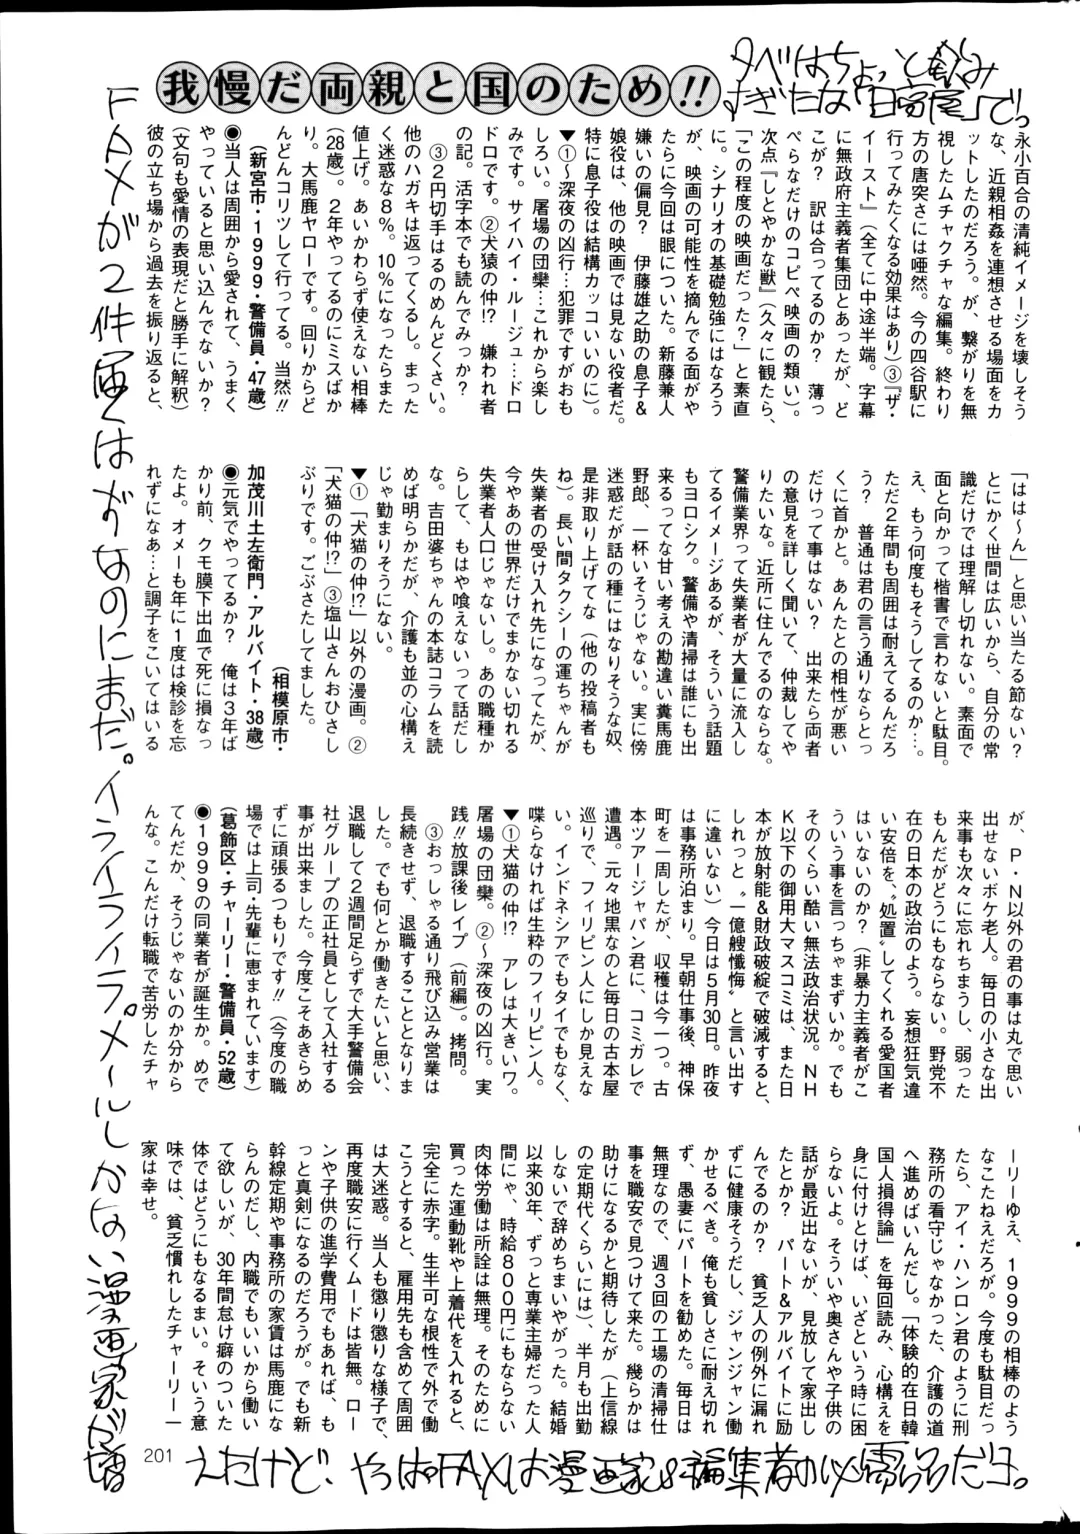 我慢だ両親と国のため!!
永小百合の清純イメージを壊しそう
な、近親相姦を連想させる場面をカ
ットしたのだろう。が、繋がりを無
視したムチャクチャな編集。終わり
方の唐突さには唖然。今の四谷駅に
行ってみたくなる効果はあり)③『ザ・
イースト』(全てに中途半端。字幕
に無政府主義者集団とあったが、ど
こが? 訳は合ってるのか? 薄っ
ぺらなだけのコピペ映画の類い)。
次点『しとやかな獣』(久々に観たら、
「この程度の映画だった?」と素直
に。シナリオの基礎勉強にはなろう
が、映画の可能性を摘んでる面がや
たらに今回は眼についた。新藤兼人
嫌いの偏見? 伊藤雄之助の息子&
娘役は、他の映画では見ない役者だ。
特に息子役は結構カッコいいのに)。
▼①〜深夜の凶行…犯罪ですがおも
しろい。屠場の団欒…これから楽し
みです。サイハイ・ルージュ…ドロ
ドロです。②犬猿の仲!? 嫌われ者
の記。活字本でも読んでみっか?
③2円切手はるのめんどくさい。
他のハガキは返ってくるし。まった
く迷惑な8%。10%になったらまた
値上げ。あいかわらず使えない相棒
(28歳)。2年やってるのにミスばか
り。大馬鹿ヤローです。回りからど
んどんコリツして行ってる。当然!!
(新宮市・1999・警備員・47歳)
●当人は周囲から愛されて、うまく
やっていると思い込んでないか?
(文句も愛情の表現だと勝手に解釈)
彼の立ち場から過去を振り返ると、
「はは〜ん」と思い当たる節ない?
とにかく世間は広いから、自分の常
識だけでは理解し切れない。素面で
面と向かって楷書で言わないと駄目。
え、もう何度もそうしてるのか…。
ただ2年間も周囲は耐えてるんだろ
う? 普通は君の言う通りならとっ
くに首かと。あんたとの相性が悪い
だけって事はない? 出来たら両者
の意見を詳しく聞いて、仲裁してや
りたいな。近所に住んでるのならな。
警備業界って失業者が大量に流入し
てるイメージあるが、そういう話題
もヨロシク。警備や清掃は誰にも出
来るって甘い考えの勘違い糞馬鹿
野郎、一杯いそうじゃない。実に傍
迷惑だが話の種にはなりそうな奴、
是非取り上げてな(他の投稿者も
ね)。長い間タクシーの運ちゃんが
失業者の受け入れ先になってたが、
今やあの世界だけでまかない切れる
失業者人口じゃないし。あの職種か
らして、もはや喰えないって話だし
な。吉田婆ちゃんの本誌コラムを読
めば明らかだが、介護も並の心構え
じゃ勤まりそうにない。
▼①「犬猫の仲!?」以外の漫画。②
「犬猫の仲!?」③塩山さんおひさし
ぶりです。ごぶさたしてました。
(相模原市・
加茂川土左衛門・アルバイト・38歳)
●元気でやってるか? 俺は3年ば
かり前、クモ膜下出血で死に損なっ
たよ。オメーも年に1度は検診を忘
れずになあ…と調子をこいてはいる
が、P・N以外の君の事は丸で思い
出せないボケ老人。毎日の小さな出
来事も次々に忘れちまうし、弱った
もんだがどうにもならない。野党不
在の日本の政治のよう。妄想狂気違
い安倍を、〝処置〟してくれる愛国者
はいないのか?(非暴力主義者がこ
ういう事を言っちゃまずいか。でも
そのくらい酷い無法政治状況。NH
K以下の御用大マスコミは、また日
本が放射能&財政破綻で破滅すると、
しれっと〝一億艘懺悔〟と言い出す
に違いない)今日は5月30日。昨夜
は事務所泊まり。早朝仕事後、神保
町を一周したが、収穫は今一つ。古
本ツアージャパン君に、コミガレで
遭遇。元々地黒なのと毎日の古本屋
巡りで、フィリピン人にしか見えな
い。インドネシアでもタイでもなく、
喋らなければ生粋のフィリピン人。
▼①犬猫の仲!? アレは大きいワ。
屠場の団欒。②〜深夜の凶行。実
践!!放課後レイプ(前編)。拷問。
③おっしゃる通り飛び込み営業は
長続きせず、退職することとなりま
した。でも何とか働きたいと思い、
退職して2週間足らずで大手警備会
社グループの正社員として入社する
事が出来ました。今度こそあきらめ
ずに頑張るつもりです!!(今度の職
場では上司・先輩に恵まれています)
(葛飾区・チャーリー・警備員・52歳)
●1999の同業者が誕生か。めで
てんだか、そうじゃないのか分から
んな。こんだけ転職で苦労したチャ
ーリーゆえ、1999の相棒のよう
なこたねえだろが。今度も駄目だっ
たら、アイ・ハンロン君のように刑
務所の看守じゃなかった、介護の道
へ進めばいいんだし。「体験的在日韓
国人損得論」を毎回読み、心構えを
身に付けとけば、いざという時に困
らないよ。そういや奥さんや子供の
話が最近出ないが、見放して家出し
たとか? パート&アルバイトに励
んでるのか? 貧乏人の例外に漏れ
ずに健康そうだし、ジャンジャン働
かせるべき。俺も貧しさに耐え切れ
ず、愚妻にパートを勧めた。毎日は
無理なので、週3回の工場の清掃仕
事を職安で見つけて来た。幾らかは
助けになるかと期待したが(上信線
の定期代くらいには)、半月も出勤
しないで辞めちまいやがった。結婚
以来30年、ずっと専業主婦だった人
間にゃ、時給800円にもならない
肉体労働は所詮は無理。そのために
買った運動靴や上着代を入れると、
完全に赤字。生半可な根性で外で働
こうとすると、雇用先も含めて周囲
は大迷惑。当人も懲り懲りな様子で、
再度職安に行くムードは皆無。ロー
ンや子供の進学費用でもあれば、も
っと真剣になるのだろうが。でも新
幹線定期や事務所の家賃は馬鹿にな
らんのだし、内職でもいいから働い
て欲しいが、30年間怠け癖のついた
体ではどうにもなるまい。そういう意
味では、貧乏慣れしたチャーリー一
家は幸せ。
夕べはちょっと飲み
すぎたな「日高屋」で。
FAXが2件届くはずなのにまだ。イライライライラ。メールしかない漫画家が増
えたけど、やっぱFAXは漫画家&編集者の必需品だヨ。
201